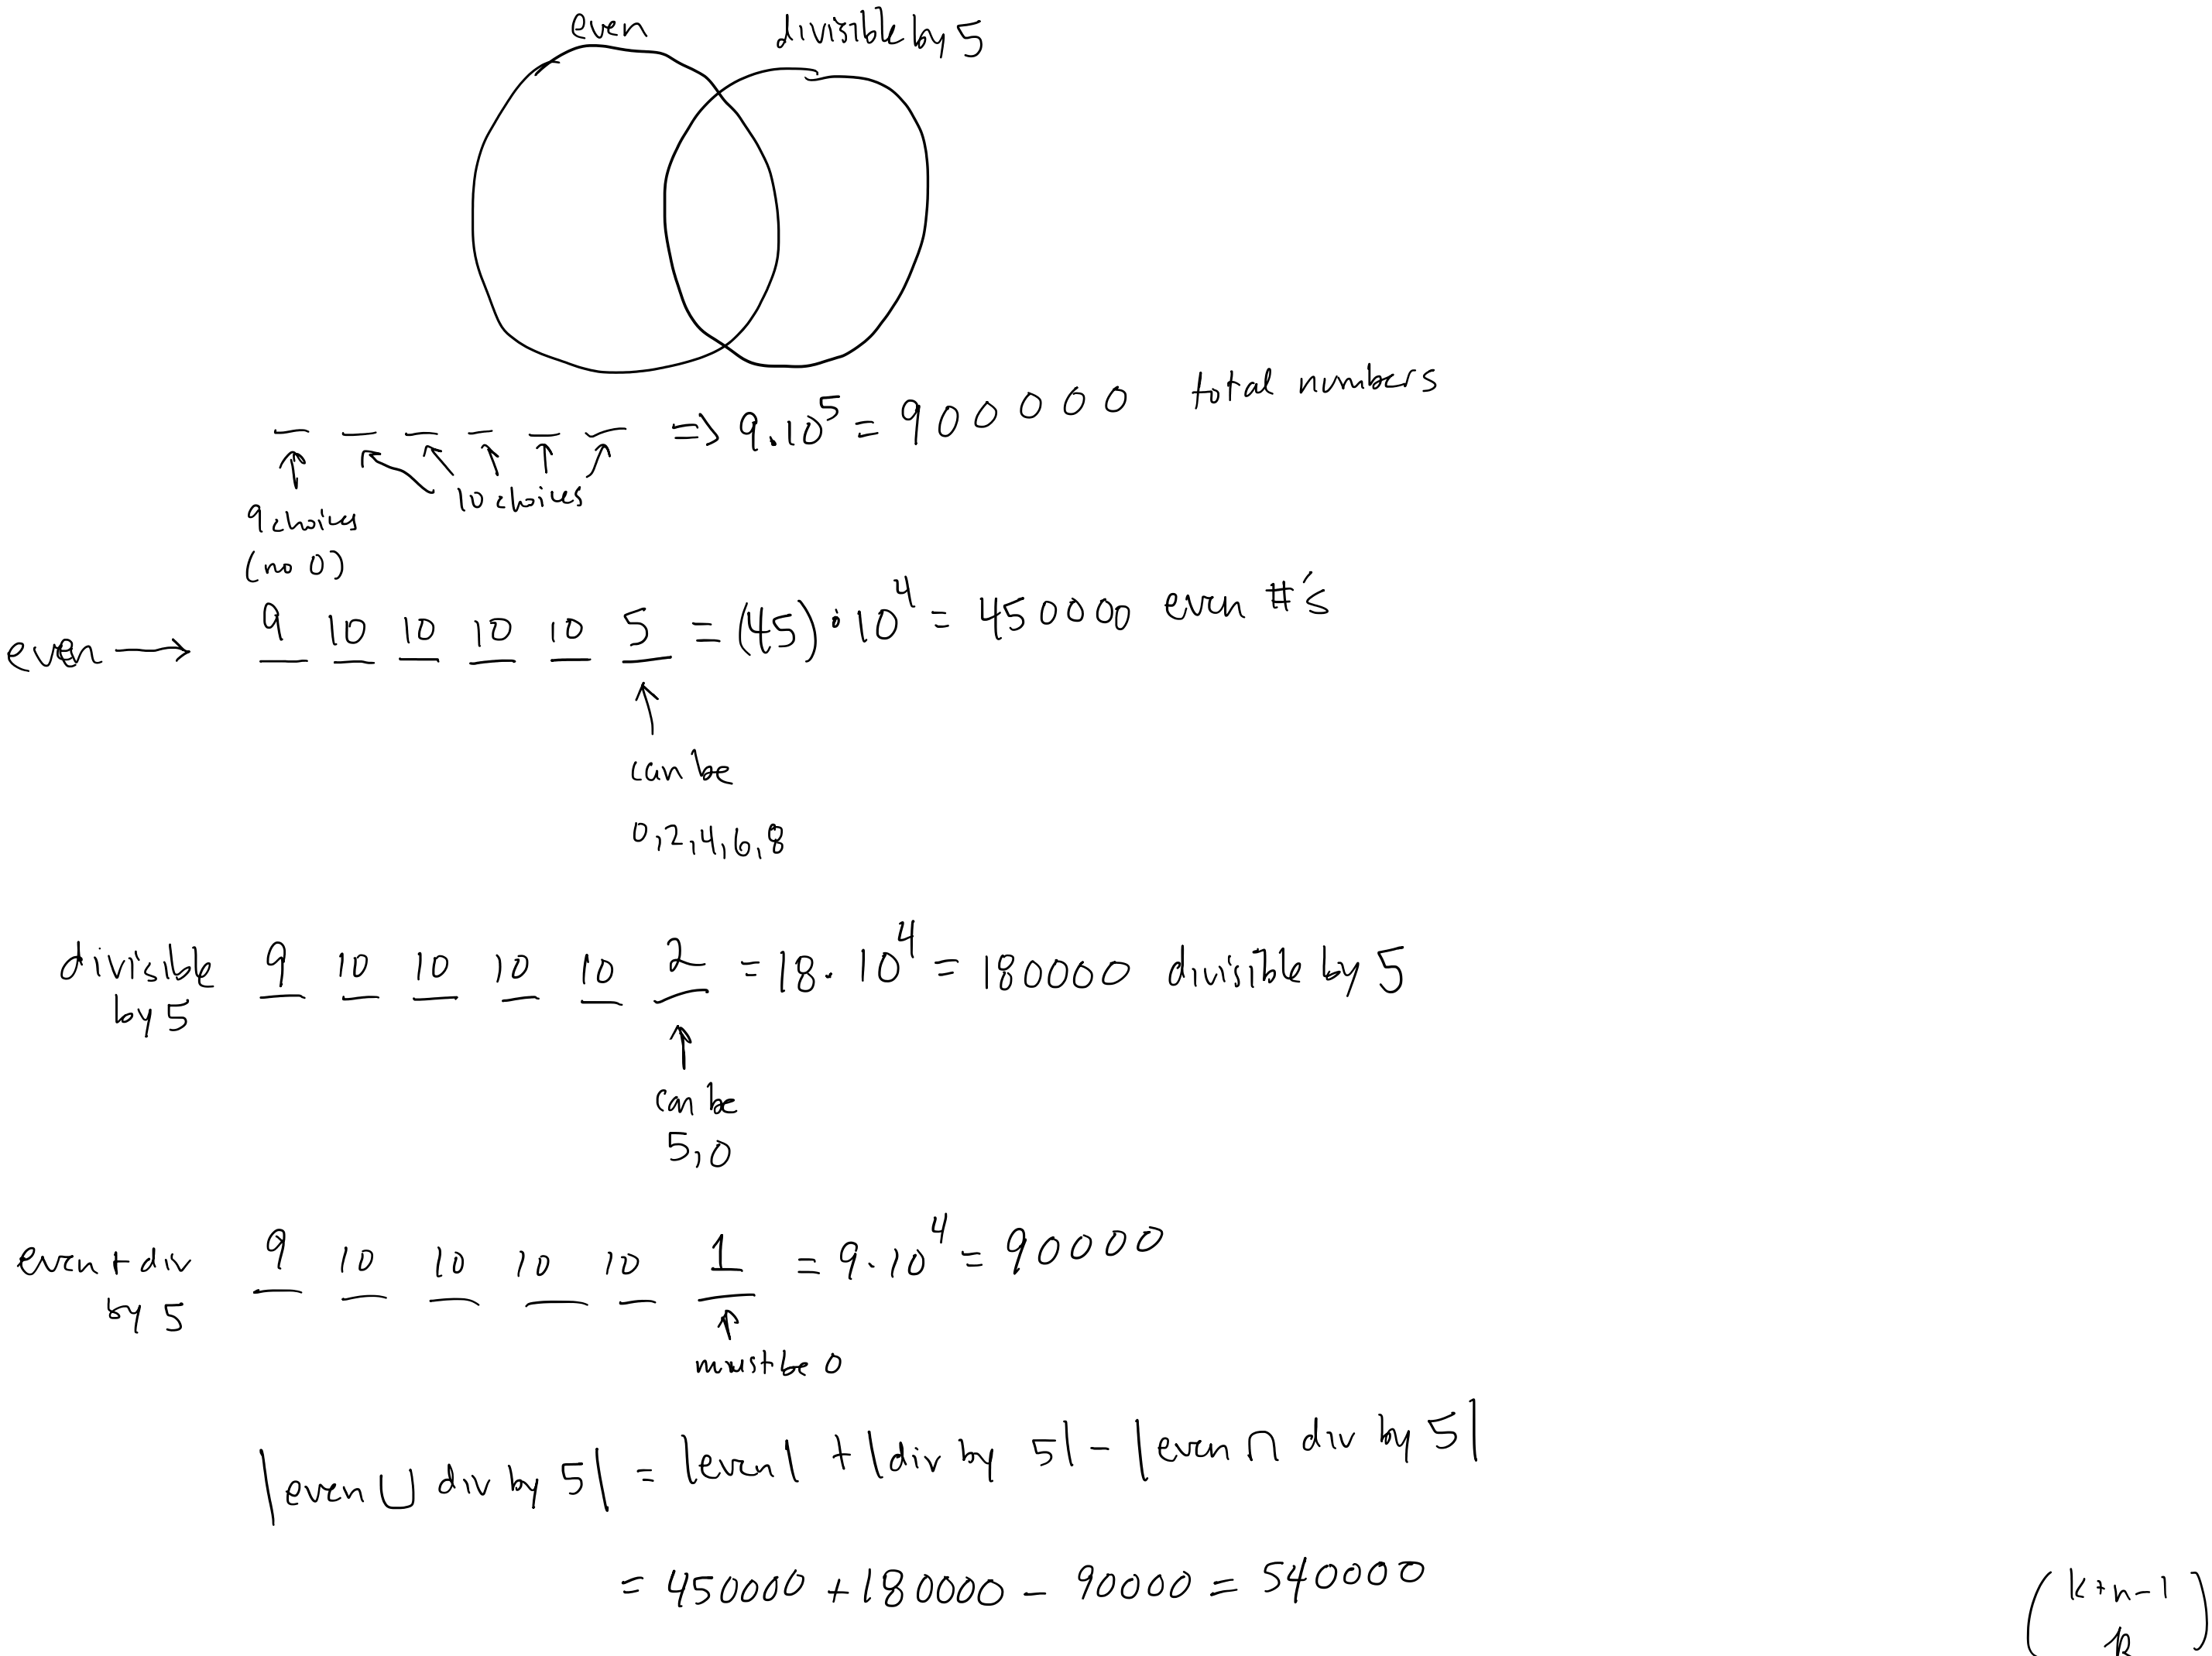 even divisible by 5
=> 9.10^5 = 900000 total numbers
9 choices 10 choices
(no 0)
even → 9 10 10 10 10 5 = (45)·10^4 = 450000 even #'s
can be
0,2,4,6,8
divisible 9 10 10 10 10 2 = 18·10^4 = 180000 divisible by 5
by 5
can be
5,0
even + div 9 10 10 10 10 1 = 9·10^4 = 90000
by 5
must be 0
|even ∪ div by 5| = |even| + |div by 5| - |even ∩ div by 5|
= 450000 + 180000 - 90000 = 540000
(k+n-1